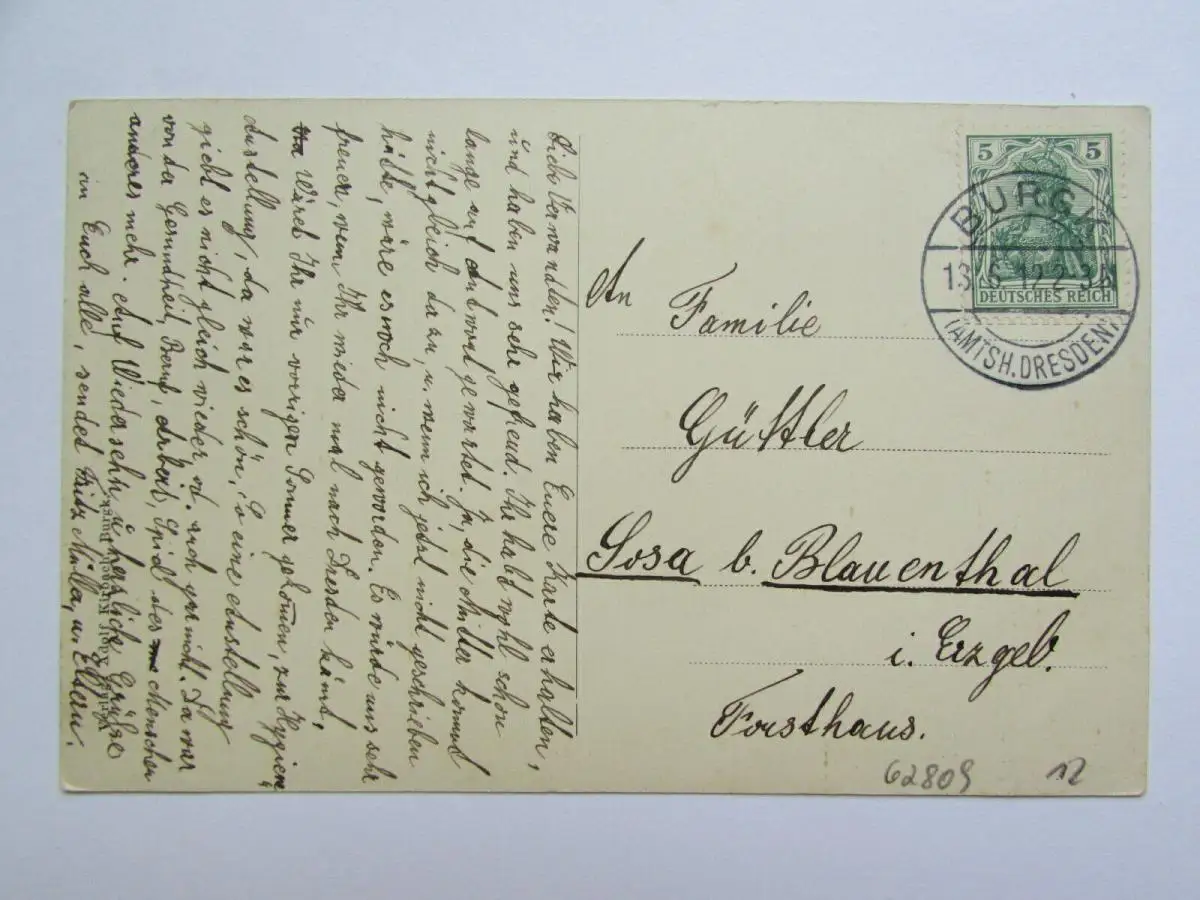 Liebe Verwandten! Wir haben Euere Karte erhalten,
und haben uns sehr gefreud. Ihr habt wohl schon
lange auf Antwort gewartet. Ja, die Mutter kommt
nicht gleich dazu, u. wenn ich jetzt nicht geschrieben
hätte, wäre es noch nicht geworden. Es würde uns sehr
freuen, wenn Ihr wieder mal nach Dresden kämt,
Wäret Ihr nur vorigen Sommer gekommen, zur Hygiene
Ausstellung, da war es schön, so eine Ausstellung
giebt es nicht gleich wieder od. auch gar nicht. Da war
von da Gesundheit, Beruf, Arbeit, Spiel des Menschen
anderes mehr. Auf Wiedersehn u. herzliche Grüße
an Euch alle, sendet Fritz Müller, u. Eltern.
5 5
DEUTSCHES REICH
BURGK
13.6.12.2-3N.
(AMTSH. DRESDEN)
An Familie
Güttler
Sosa b. Blauenthal
i. Erzgeb.
Forsthaus.
62809 12